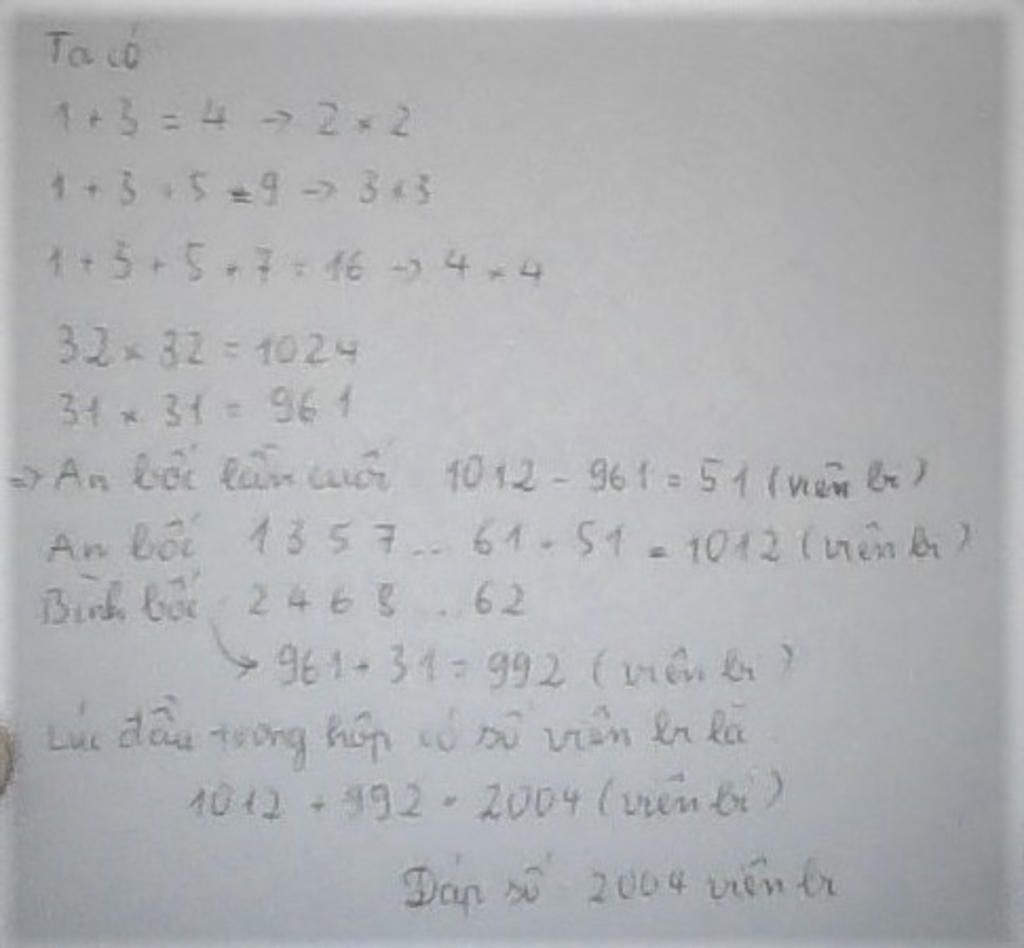 Ta có
1 + 3 = 4 → 2 × 2
1 + 3 + 5 = 9 → 3 × 3
1 + 3 + 5 + 7 = 16 → 4 × 4
32 × 32 = 1024
31 × 31 = 961
⇒ An bốc lần cuối 1012 - 961 = 51 (viên bi)
An bốc 1 3 5 7 ... 61 + 51 = 1012 (viên bi)
Bình bốc 2 4 6 8 ... 62
↘ 961 + 31 = 992 (viên bi)
Lúc đầu trong hộp có số viên bi là
1012 + 992 = 2004 (viên bi)
Đáp số 2004 viên bi